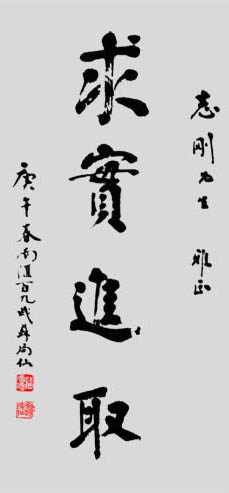 志剛先生 雅正
求實進取
庚午春南滙百九歲蘇局仙